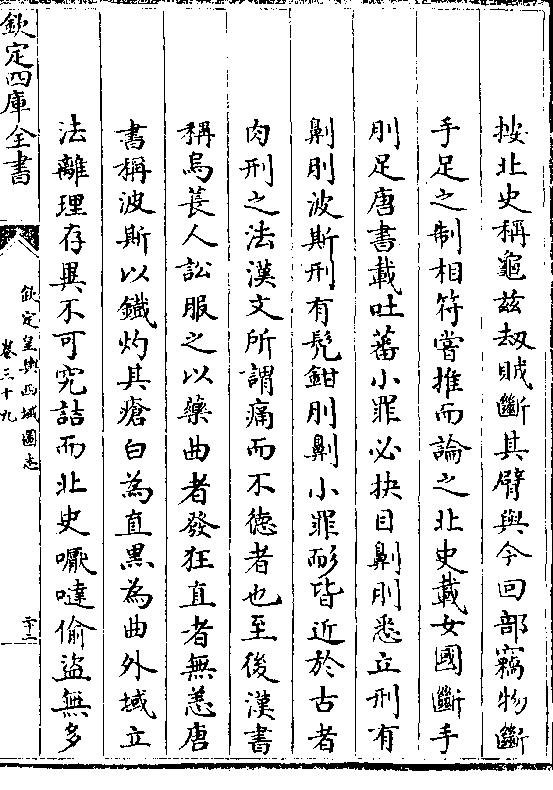 按北史稱龜兹刼賊斷其臂與今回部竊物斷
手足之制相符嘗推而論之北史載女國斷手
刖足唐書載吐蕃小罪必抉目劓刖悉立刑有
劓刖波斯刑有髠鉗刖劓小罪耏皆近於古者
肉刑之法漢文所謂痛而不德者也至後漢書
稱烏萇人訟服之以藥曲者發狂直者無恙唐
書稱波斯以鐵灼其瘡白為直黒為曲外域立
法離理存異不可究詰而北史嚈噠偷盜無多
欽定四庫全書
欽定皇輿西域圖志
卷三十九